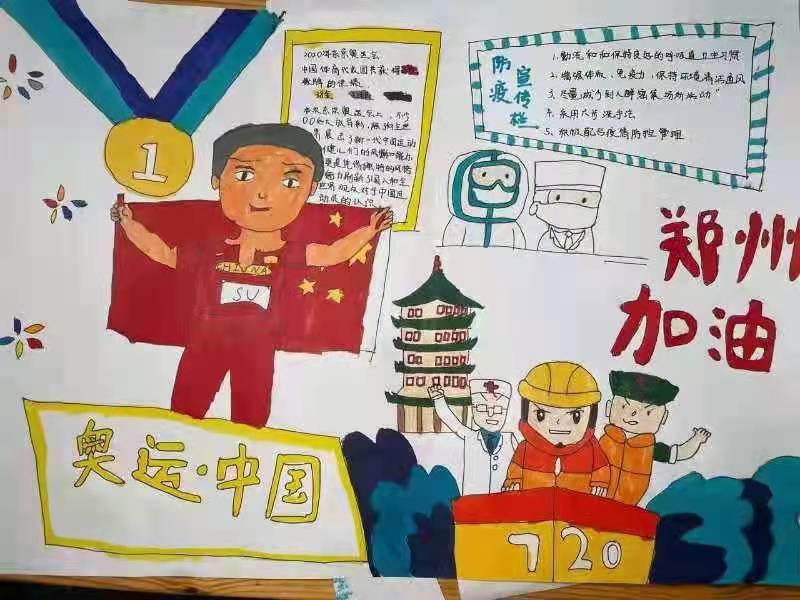 1
2020年东京奥运会
中国体育代表团共获得
奖牌的佳绩
本次东京奥运会上,不少
00后大放异彩,
展示了新一代中国运动
健儿们的风貌和能力
更是凭借独特的风格
魅力刷新了国人和全
世界观众对于中国运
动员的认识
防疫
宣传栏
1.勤洗和保持良好的呼吸道卫生习惯
2.增强体质,免疫力,保持环境清洁通风
3.尽量减少到人群密集场所活动
4.采用六步洗手法
5.积极配合疫情防控管理
郑州
加油
CHINA
SU
奥运·中国
720